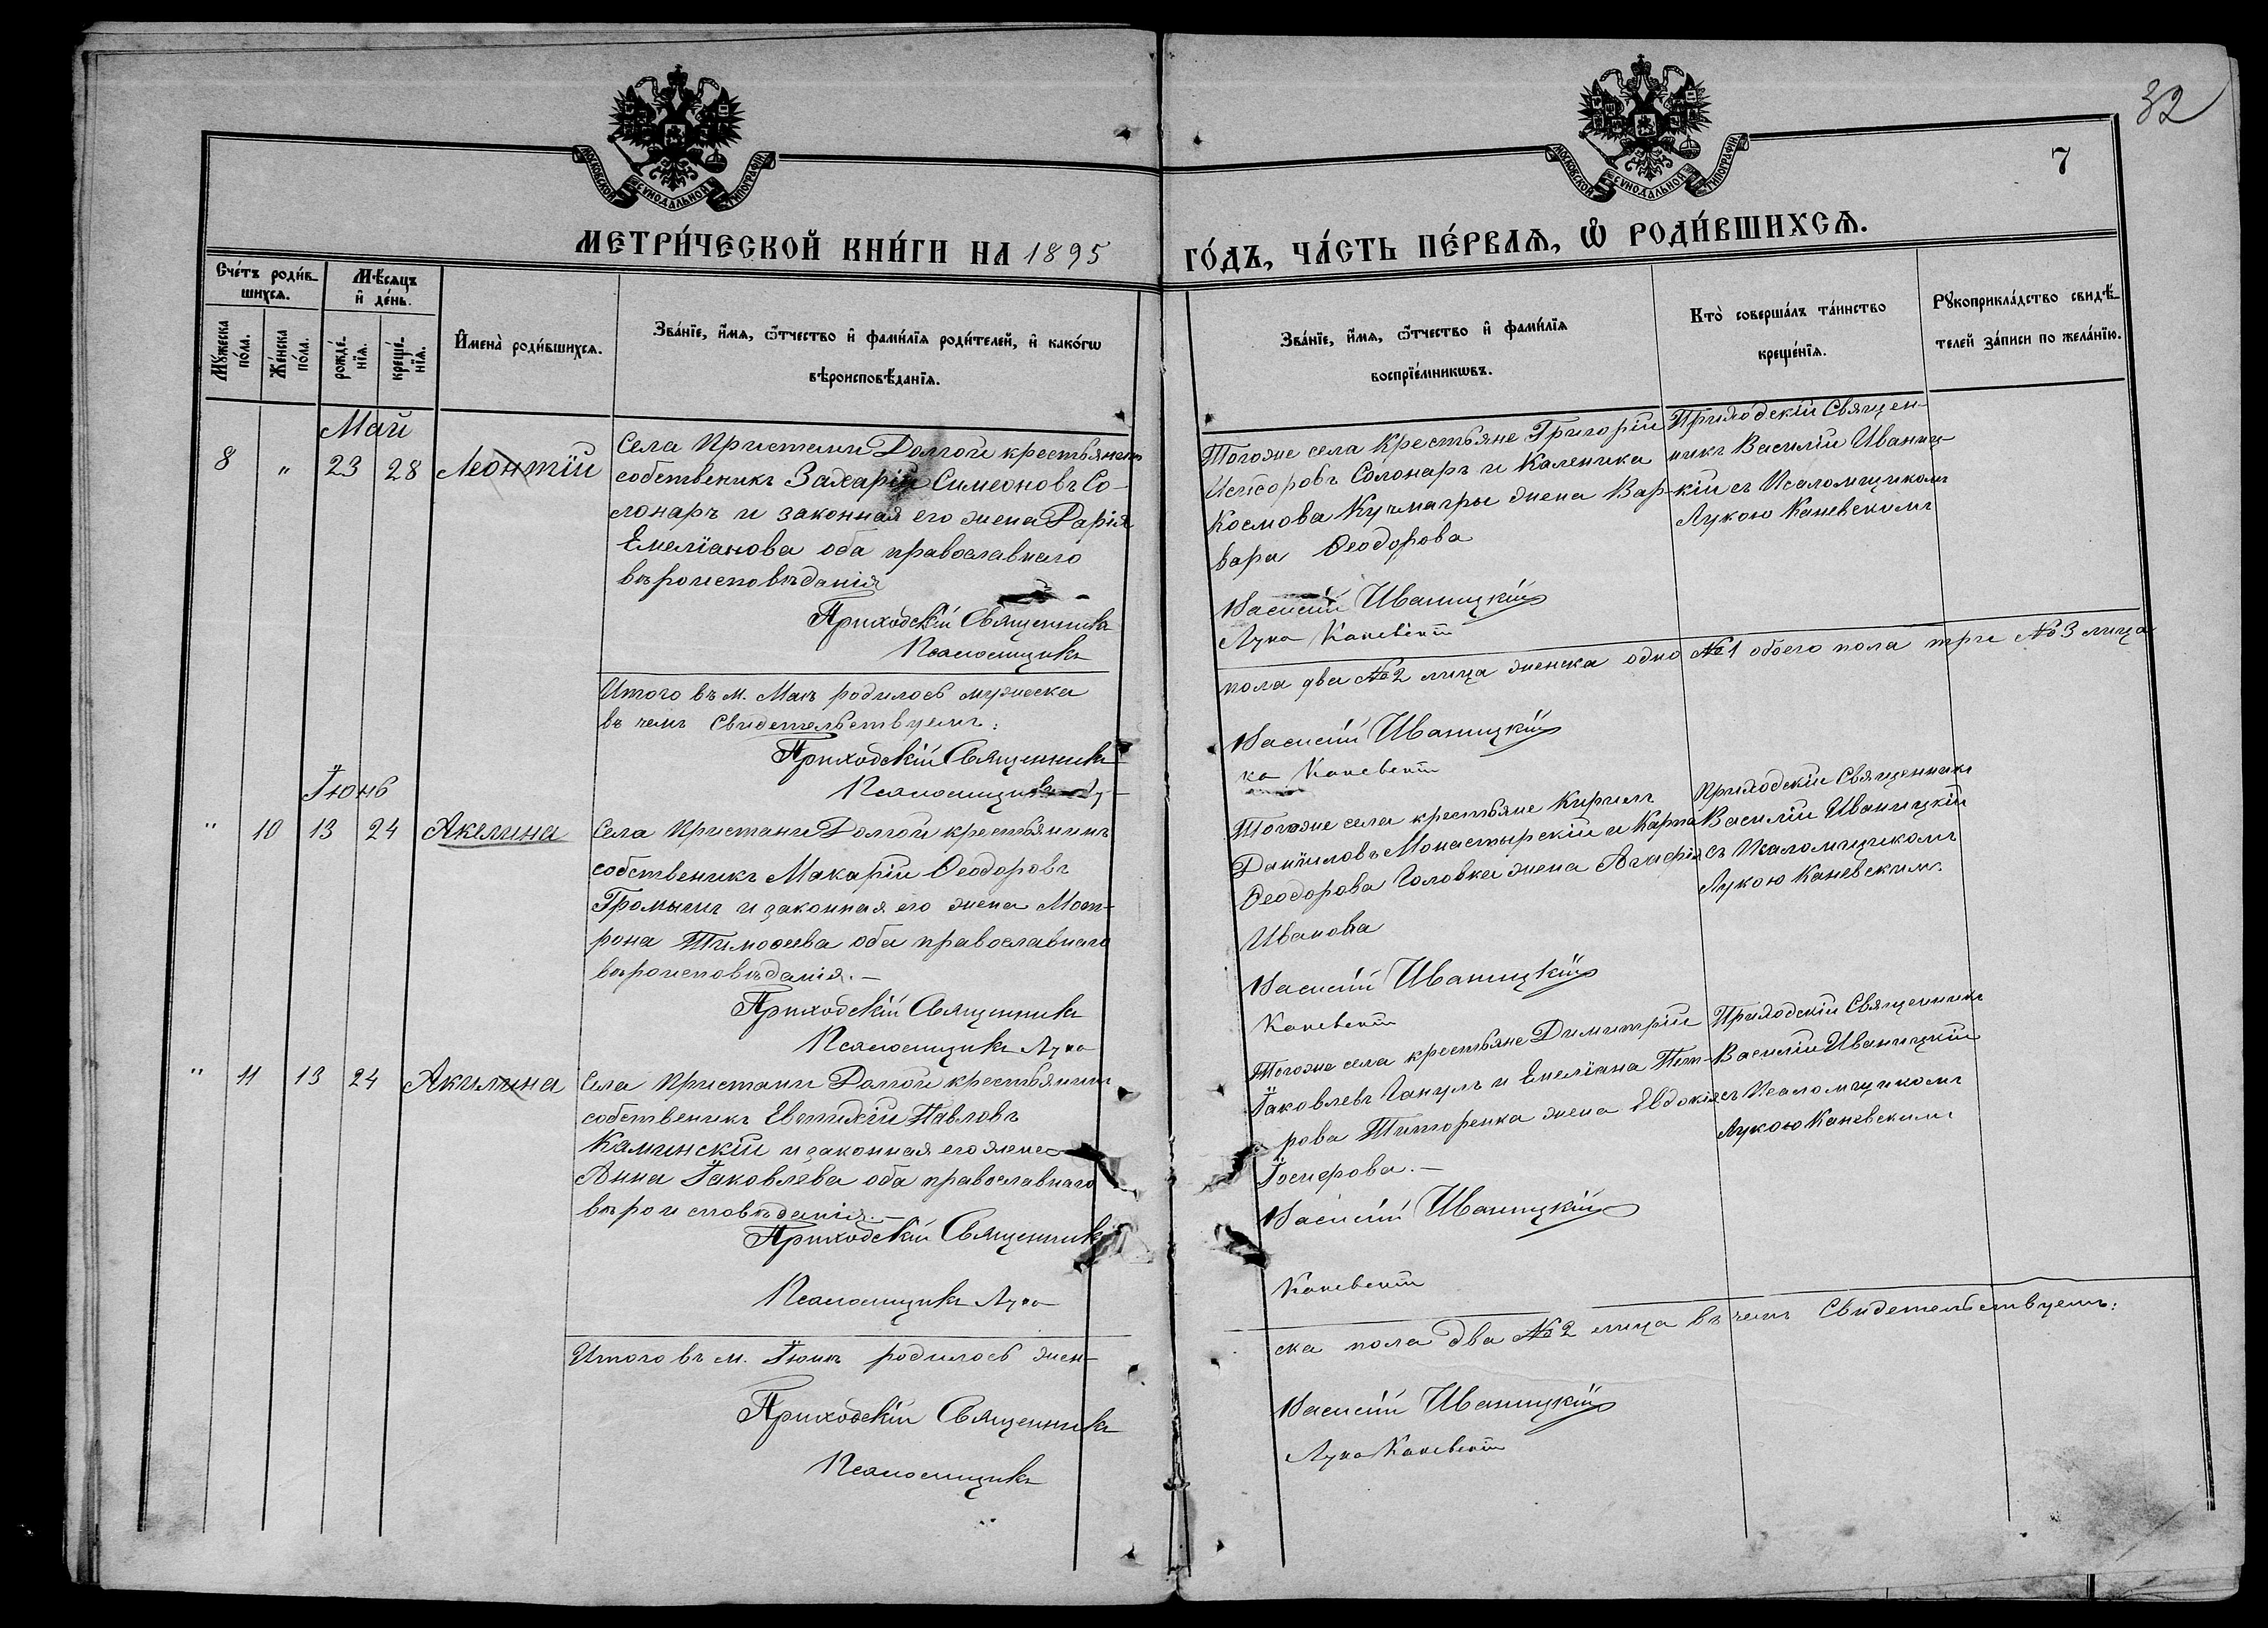 32
7
МОСКОВСКОЙ СѴНОДАЛЬНОЙ ТИПОГРАФІИ
МОСКОВСКОЙ СѴНОДАЛЬНОЙ ТИПОГРАФІИ
МЕТРИ́ЧЕСКОЙ КНИ́ГИ НА 1895
ГО́ДЪ, ЧА́СТЬ ПЕ́РВАѦ, Ѡ РОДИ́ВШИХСѦ.
Сче́тъ роди́в-
шихсѧ.
Мѣсяцъ
и де́нь.
Мꙋ́жеска
по́ла.
Же́нска
по́ла.
рожде́-
нїѧ.
креще́-
нїѧ.
Имена̀ роди́вшихсѧ.
Зва́нїе, и́мѧ, ѻ́тчество и фами́лїѧ роди́телей, и како́гѡ
вѣроисповѣ́данїѧ.
Зва́нїе, и́мѧ, ѻ́тчество и фами́лїѧ
воспрїе́мникѡвъ.
Кто̀ соверша́лъ та́инство
креще́нїѧ.
Рꙋкоприкла́дство свидѣ́-
телей за́писи по жела́нїю.
Май
8 " 23 28 Леонтій
Села Пристани Долгой крестьянинъ
собственикъ Захарій Симеоновъ Со-
лонаръ и законная его жена Дарія
Емеліанова оба православнаго
вѣроисповѣданія
Приходскій Священникъ
Псаломщикъ
Тогоже села крестьяне Григорій
Исидоровъ Солонаръ и Каленика
Космова Кучмагры жена Вар-
вара Ѳеодорова
Василій Иваницкій
Лука Каневскій
Приходскій Священ-
никъ Василій Иваниц-
кій съ Псаломщикомъ
Лукою Каневскимъ
Итого въ м. Маѣ родилось мужеска
въ чемъ Свидетельствуемъ:
Приходскій Священникъ
Псаломщикъ Лу-
пола два № 2 лица женска одно № 1 обоего пола три № 3 лица
Василій Иваницкій
ка Каневскій
Іюнь
" 10 13 24 Акелина
Села Пристани Долгой крестьянинъ
собственикъ Макарій Ѳеодоровъ
Громыгъ и законная его жена Мот-
рона Тимоѳеева оба православнаго
вѣроисповѣданія. —
Приходскій Священникъ
Псаломщикъ Лука
Тогоже села крестьяне Кирилъ
Даніиловъ Монастырскій и Карпа
Ѳеодорова Головка жена Агафія
Иванова
Василій Иваницкій
Каневскій
Приходскій Священникъ
Василій Иваницкій
съ Псаломщикомъ
Лукою Каневскимъ.
" 11 13 24 Акилина
Села Пристани Долгой крестьянинъ
собственикъ Евтихій Павловъ
Каминскій и законная его жена
Анна Іаковлева оба православнаго
вѣроисповѣданія. —
Приходскій Священникъ
Псаломщикъ Лука
Тогоже села крестьяне Димитрій
Іаковлевъ Ганулъ и Емеліана Пет-
рова Титоренка жена Евдокія
Іосифова. —
Василій Иваницкій
Каневскій
Приходскій Священникъ
Василій Иваницкій
съ Псаломщикомъ
Лукою Каневскимъ
Итого въ м. Іюнѣ родилось жен-
Приходскій Священникъ
Псаломщикъ
ска пола два № 2 лица въ чемъ Свидетельствуемъ:
Василій Иваницкій
Лука Каневскій